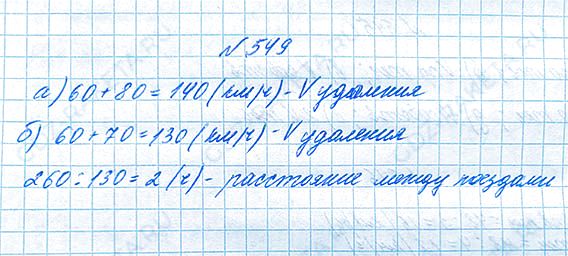 №549
а) 60 + 80 = 140 (км/ч) - V удаления
б) 60 + 70 = 130 (км/ч) - V удаления
260 : 130 = 2 (ч) - расстояние между поездами